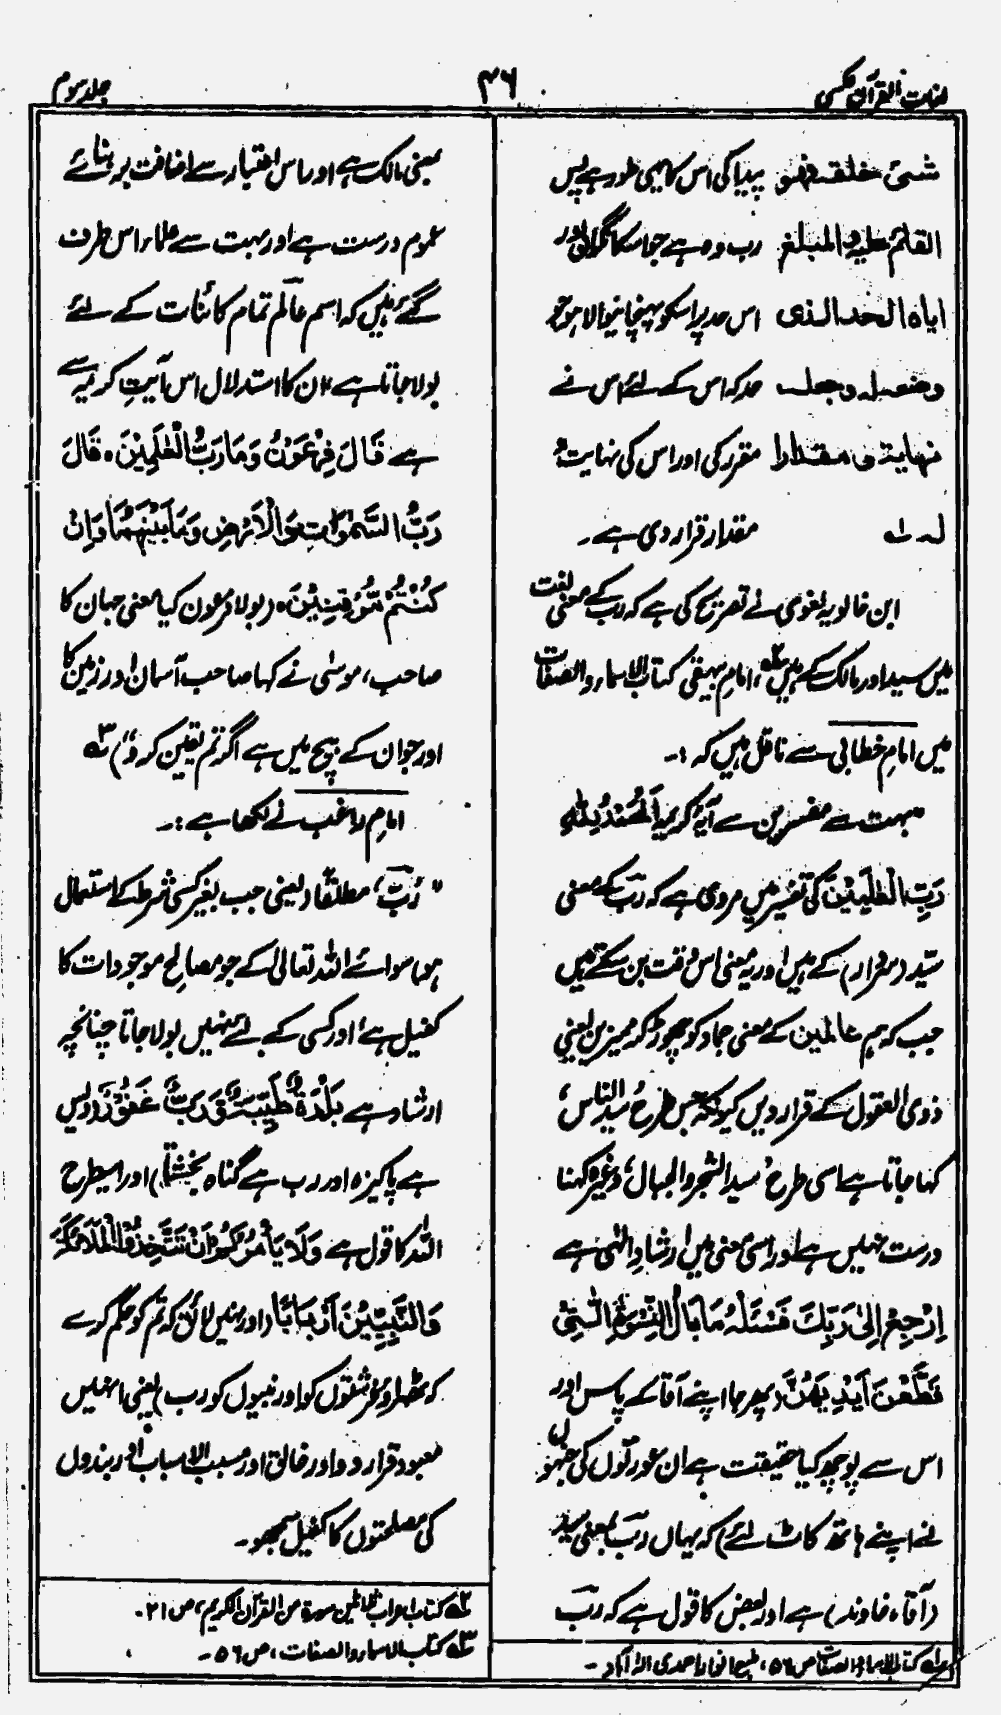 لغات القرآن عکسی
۴۶
جلد سوم
شئ خلقہ فھو پیدا کی اس کا یہی طور ہے پس
القائم علیہ والمبلغ رب وہ ہے جو اسکا نگراں اور
ایاہ الحد الذی اس حد پر اسکو پہنچانیوالا ہو جو
وضعہ لہ وجعلہ حد کہ اس کے لئے اس نے
نہایۃ و مقدارا مقرر کی اور اس کی نہایت و
لہ لہ مقدار قرار دی ہے۔
ابن خالویہ لغوی نے تصریح کی ہے کہ رب کے معنی لغت
میں سید اور مالک کے ہیں ۲ہ، امام بیہقی کتاب الاسماء والصفات
میں امام خطابی سے ناقل ہیں کہ :۔
بہت سے مفسرین سے آیۂ کریمہ اَلْحَمْدُ لِلّٰہِ
رَبِّ الْعٰلَمِیْنَ کی تفسیر میں مروی ہے کہ رَبّ کے معنی
سَیِّد (سردار) کے ہیں اور یہ معنی اس وقت بن سکتے ہیں
جب کہ ہم عالمین کے معنی جماد کو چھوڑ کر ممیزین یعنی
ذوی العقول کے قرار دیں کیونکہ جس طرح سید الناس
کہا جاتا ہے اسی طرح سید الشجر والجبال وغیرہ کہنا
درست نہیں ہے اور اسی معنی میں ارشاد الٰہی ہے
اِرْجِعْ اِلٰی رَبِّکَ فَسْئَلْہُ مَا بَالُ النِّسْوَۃِ الّٰتِیْ
قَطَّعْنَ اَیْدِیَھُنَّ (پھر جا اپنے آقا کے پاس اور
اس سے پوچھ کیا حقیقت ہے ان عورتوں کی جنہوں
نے اپنے ہاتھ کاٹ لئے) کہ یہاں رَبّ بمعنی سید
(آقا، خاوند) ہے اور بعض کا قول ہے کہ رَبّ
لہ کتاب الاسماء والصفات ص ۵۶، طبع انوار احمدی الہ آباد ۔
بمعنی مالک ہے اور اس اعتبار سے اضافت بر بنائے
عموم درست ہے اور بہت سے علماء اس طرف
گئے ہیں کہ اسم عالَم تمام کائنات کے لئے
بولا جاتا ہے، ان کا استدلال اس آیتِ کریمہ سے
ہے قَالَ فِرْعَوْنُ وَمَا رَبُّ الْعٰلَمِیْنَ ۰ قَالَ
رَبُّ السَّمٰوٰتِ وَالْاَرْضِ وَمَا بَیْنَھُمَا وَاِنْ
کُنْتُمْ مُّوْقِنِیْنَ ۰ (بولا فرعون کیا معنی جہان کا
صاحب، موسٰی نے کہا صاحب آسمان اور زمین کا
اور جو ان کے بیچ میں ہے اگر تم یقین کرو) ۳ہ
امام راغب نے لکھا ہے :۔
"رَبّ، مطلقًا (یعنی جب بغیر کسی شرط کے استعمال
ہو) سوائے اللہ تعالیٰ کے جو مصالح موجودات کا
کفیل ہے اور کسی کے لئے نہیں بولا جاتا چنانچہ
ارشاد ہے بَلْدَۃٌ طَیِّبَۃٌ وَّرَبٌّ غَفُوْرٌ (دیس
ہے پاکیزہ اور رب ہے گناہ بخشتا) اور اسیطرح
اللہ کا قول ہے وَلَا یَاْمُرَکُمْ اَنْ تَتَّخِذُوا الْمَلٰٓئِکَۃَ
وَالنَّبِیِّیْنَ اَرْبَابًا (اور نہیں لائق کہ تم کو حکم کرے
کہ ٹھہراؤ فرشتوں کو اور نبیوں کو رب) یعنی انہیں
معبود قرار دو اور خالق اور مسبب الاسباب اور بندوں
کی مصلحتوں کا کفیل سمجھو۔
۲ہ کتاب اعراب ثلاثین سورۃ من القرآن الکریم، ص ۲۱۔
۳ہ کتاب الاسماء والصفات، ص ۵۶۔